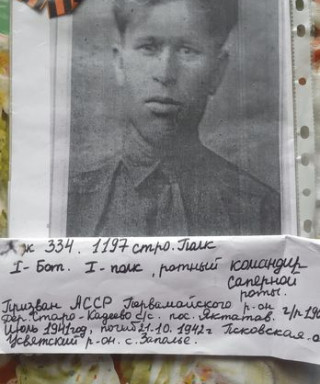 ж 334. 1197 стро. Полк
I - Бат. I - полк, ротный командир
саперной
роты.
Призван АССР Первомайского р-он
дер. Старо-Кадеево с/с. пос. Яктатав. г/р 190
Июль 1941 год, погиб 21.10.1942 г Псковская о
Усвятский р-он. с. Заполье.